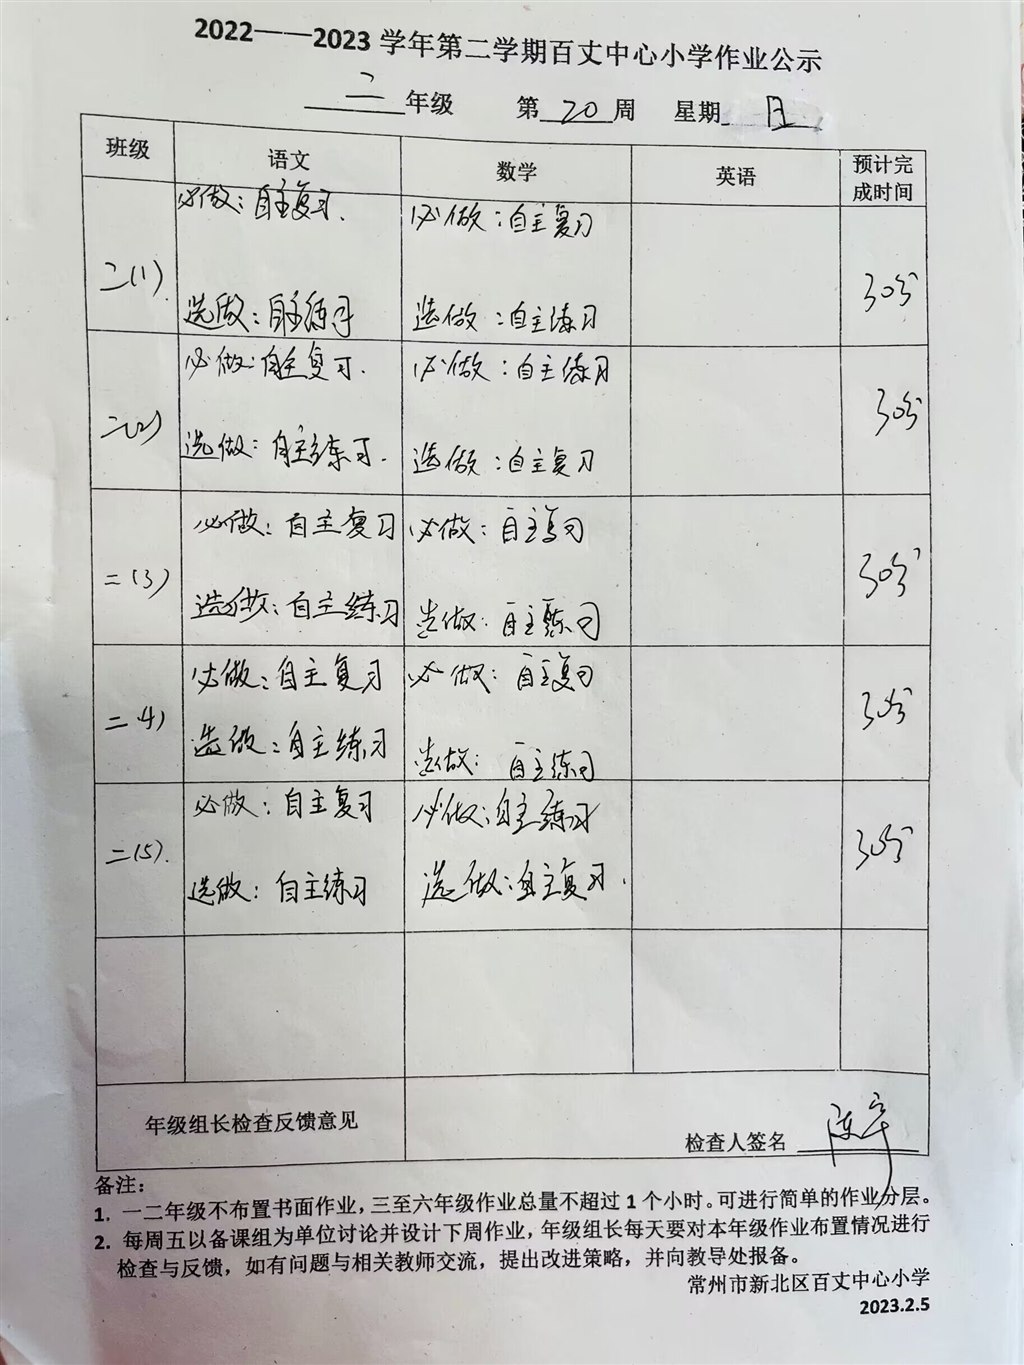 2022——2023 学年第二学期百丈中心小学作业公示
二 年级 第 20 周 星期 日
班级 语文 数学 英语 预计完成时间
二(1). 必做：自主复习. 必做：自主复习 30分
选做：自主练习 选做：自主练习
二(2) 必做：自主复习. 必做：自主练习 30分
选做：自主练习. 选做：自主复习
二(3) 必做：自主复习 必做：自主复习 30分
选做：自主练习 选做：自主练习
二(4) 必做：自主复习 必做：自主复习 30分
选做：自主练习 选做：自主练习
二(5). 必做：自主复习 必做：自主练习 30分
选做：自主练习 选做：自主复习.
年级组长检查反馈意见 检查人签名
备注：
1. 一二年级不布置书面作业，三至六年级作业总量不超过 1 个小时。可进行简单的作业分层。
2. 每周五以备课组为单位讨论并设计下周作业，年级组长每天要对本年级作业布置情况进行
检查与反馈，如有问题与相关教师交流，提出改进策略，并向教导处报备。
常州市新北区百丈中心小学
2023.2.5